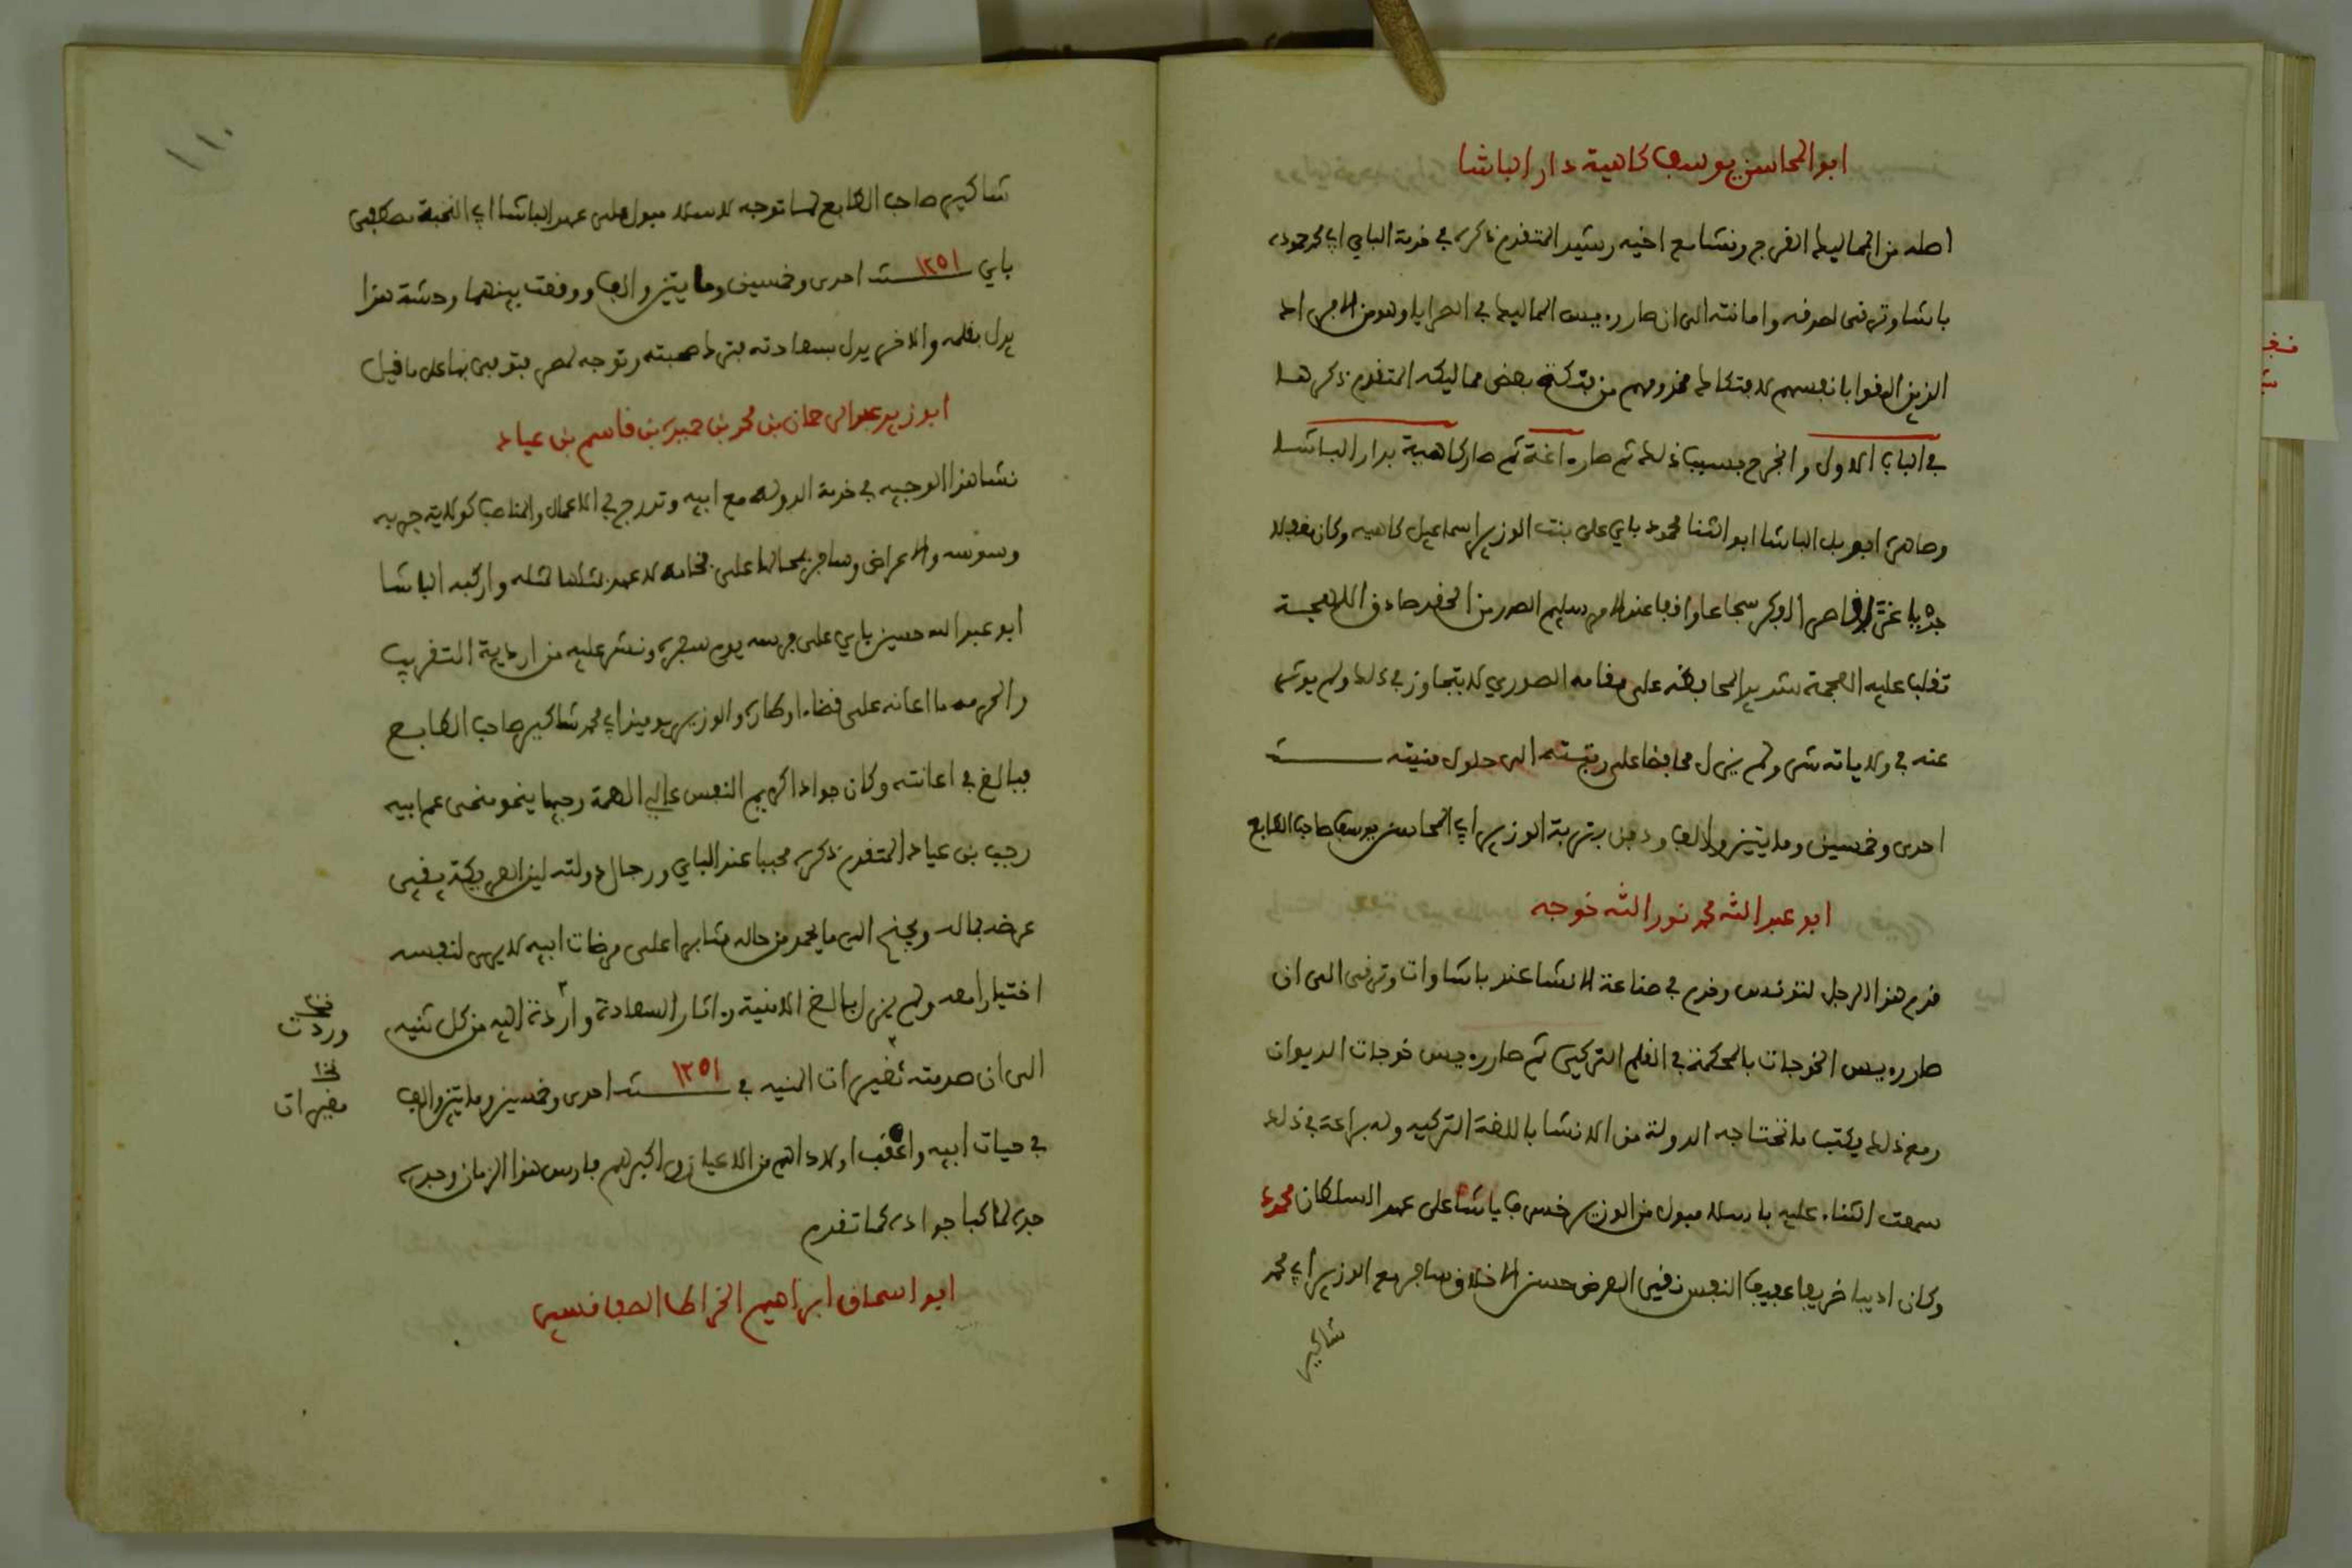 ابو المحاسن يوسف كاهية دار الباشا
اصله من المماليك الفرج ونشا مع اخيه رشيد المتقدم ذكره في خدمة الباي ابي محمد حموده
باشا وترقى لصدقه وامانته الى ان صار رءيس المماليك في الصرايا وهو من الامراء
الذين القوا بانفسهم لافتكاك مخدومهم من فتكة بعض مماليكه المتقدم ذكرها
في الباب الاول وانجرح بسبب ذلك ثم صار اغة ثم صار كاهية بدار الباشا
وصاهره ابو بل الباشا ابو الثنا محمود باي على بنت الوزير اسماعيل كاهيه وكان مقبلا
شجاعا واقفا عند الامر سليم الصدر من الحقد صادق اللهجة
تغلب عليه العجمة شديد المحافظه على مقامه الصوري لا يتجاوز في ذلك ولم يوثر
عنه في ولاياته شي ولم يزل محافظا على رتبته الى حلول منيته سنة
احدى وخمسين ومايتين والف ودفن بتربة الوزير ابي المحاسن يوسف صاحب الطابع
ابو عبد الله محمد نور الله خوجه
قدم هذا الرجل لتونس وخدم في صناعة الانشا عند باشاوات وترقى الى ان
صار رءيس الخوجات بالمحكمة في القلم التركي ثم صار رءيس خوجات الديوان
ومع ذلك يكتب ما تحتاجه الدولة من الانشا باللغة التركيه وله براعة في ذلك
سمعت الثناء عليه باسلامبول من الوزير خسرف باشا على عهد السلطان محمود
وكان اديبا ظريفا عفيف النفس نقي العرض حسن الاخلاق سافر مع الوزير ابي محمد
شاكير
١١٠
شاكير صاحب الطابع لما توجه لاسلامبول على عهد الباشا ابي النخبة مصطفى
باي ١٢٥١ سنة احدى وخمسين ومايتين والف ووقعت بينهما وحشة هذا
يدل بقلمه والاخر يدل بسعادته فترك صحبته وتوجه لمصر فتوفى بها على ما قيل
ابو زيد عبد الرحمان بن محمد بن حميدة بن قاسم بن عياد
نشا هذا الوجيه في خدمة الدولة مع ابيه وتدرج في الاعمال والمناصب كولاية جربه
وسوسه والاعراض وسافر بمحالها على فخامه لا عهد بمثلها لمثله واركبه الباشا
ابو عبد الله حسين باي على فرسه يوم سفره ونشر عليه من اردية التقريب
والحرمه ما اعانه على قضاء اوطاره والوزير يوميذ ابي محمد شاكير صاحب الطابع
يبالغ في اعانته وكان جوادا كريم النفس عالي الهمة وجيها ينحو منحى عم ابيه
رجب بن عياد المتقدم ذكره محببا عند الباي ورجال دولته لين العريكة يقي
عرضه بماله ويجنح الى ما يحمد من حاله مثابرا على مرضات ابيه لا يرى لنفسه
اختيارا معه ولم يزل بالغ الامنية واثار السعادة واردة اليه من كل ثنيه
الى ان صدمته تغيرات المنيه في ١٢٥١ سنة احدى وخمسين ومايتين والف
في حيات ابيه واعقب اولادا هم من الاعيان واكبرهم فارس هذا الزمان وجده
جده لما كبا جواده كما تقدم
ابو اسحاق ابراهيم الخراط الصفاقسي
وردت
مغيرات